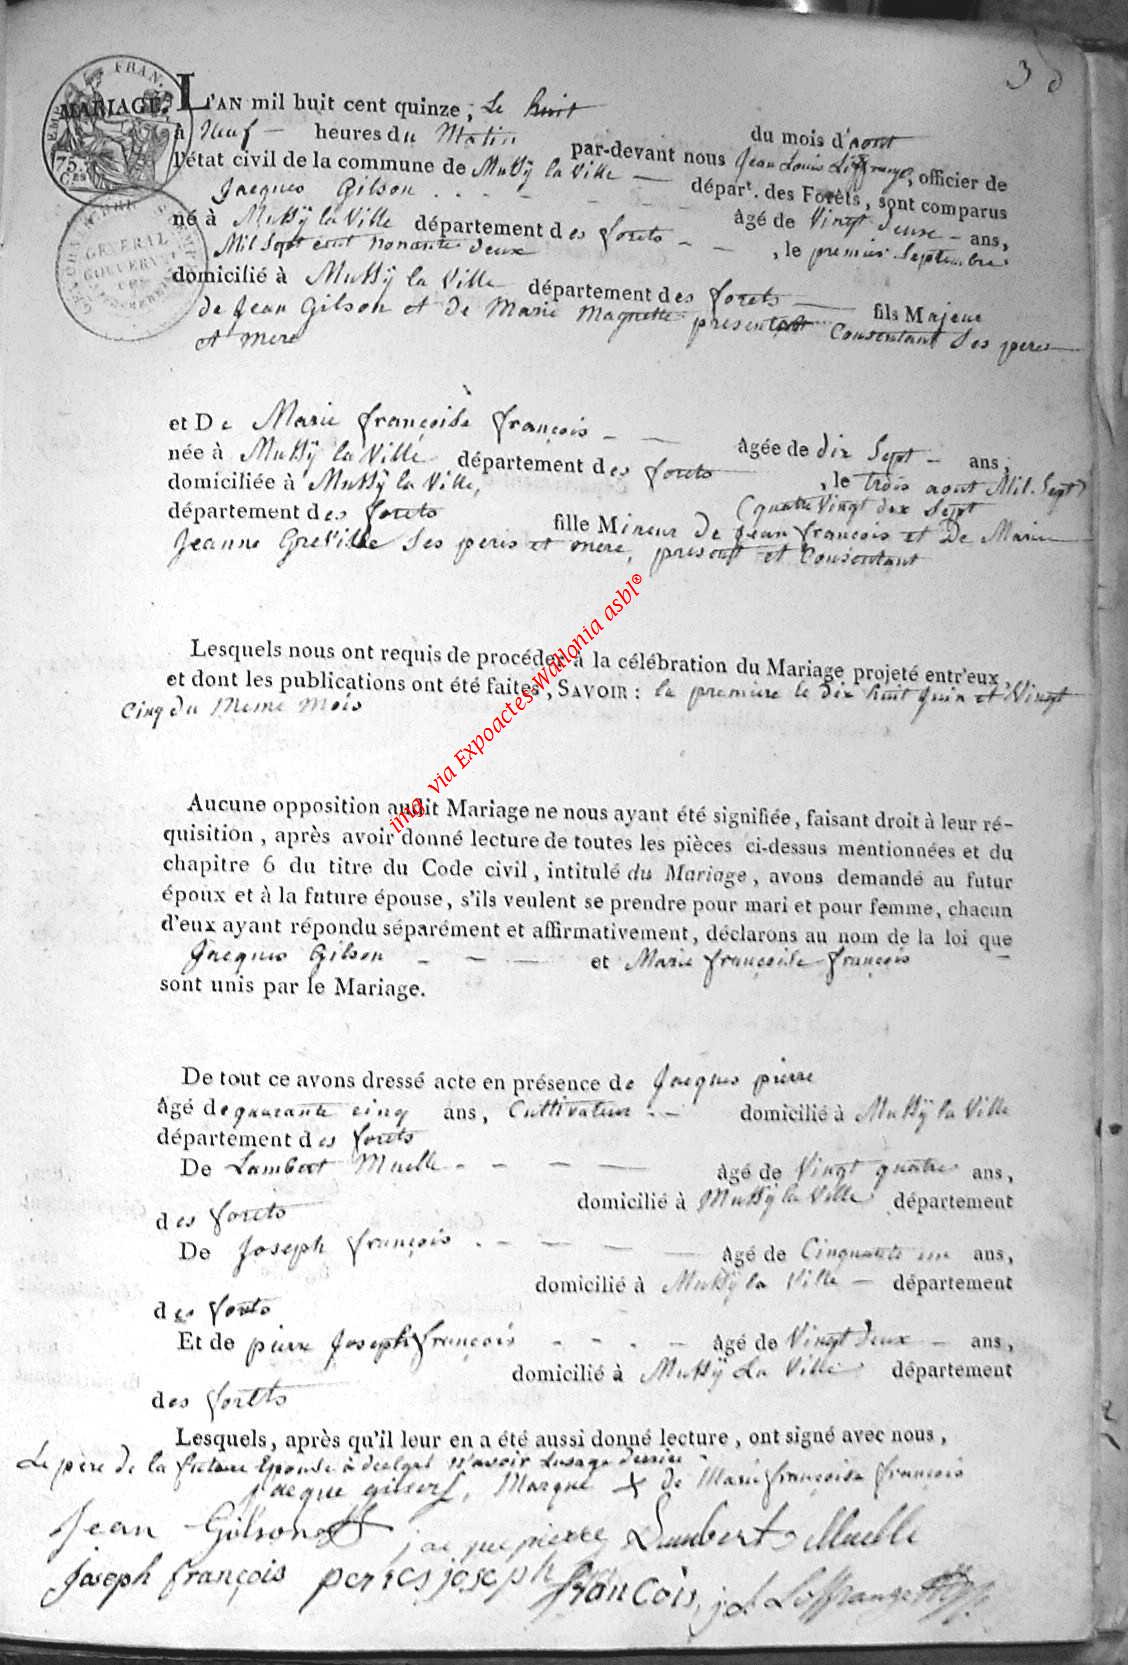 3
MARIAGE. L'AN mil huit cent quinze, Le huit du mois d'aout
à Neuf — heures du Matin par-devant nous Jean Louis Loffrange, officier de
l'état civil de la commune de Mussÿ la Ville — départ. des Forêts, sont comparus
Jacques Gilson - - - - âgé de Vingt deux - ans,
né à Mussÿ la Ville département des forets - - , le premier Septembre
Mil Sept cent nonante deux
domicilié à Mussÿ la Ville département des forets — fils Majeur
de Jean Gilson et de Marie Magnette present Consentant Ses peres
et mere
et De Marie françoise françois - — âgée de dix Sept - ans,
née à Mussÿ la Ville département des forets , le trois aout Mil Sept
(quatre Vingt dix Sept
domiciliée à Mussÿ la Ville,
département des forets fille Mineur de Jean françois et De Marie
Jeanne Greville Ses peres et mere, present et Consentant
Lesquels nous ont requis de procéder à la célébration du Mariage projeté entr'eux,
et dont les publications ont été faites, SAVOIR : la premiere le dix huit Juin et Vingt
Cinq du Meme Mois
Aucune opposition audit Mariage ne nous ayant été signifiée, faisant droit à leur ré-
quisition, après avoir donné lecture de toutes les pièces ci-dessus mentionnées et du
chapitre 6 du titre du Code civil, intitulé du Mariage, avons demandé au futur
époux et à la future épouse, s'ils veulent se prendre pour mari et pour femme, chacun
d'eux ayant répondu séparément et affirmativement, déclarons au nom de la loi que
Jacques Gilson - - — et Marie françoise françois
sont unis par le Mariage.
De tout ce avons dressé acte en présence de Jacques pierre
âgé de quarante cinq ans, Cultivateur - - domicilié à Mussÿ la Ville
département des forets
De Lambert Muelle - - - — âgé de Vingt quatre ans,
domicilié à Mussÿ la Ville département
des forets
De Joseph françois - - - — âgé de Cinquante un ans,
domicilié à Mussÿ la Ville — département
des forets
Et de pierre Joseph françois - - - - âgé de Vingt deux - ans,
domicilié à Mussÿ La Ville département
des forets
Lesquels, après qu'il leur en a été aussi donné lecture, ont signé avec nous,
Le père de la future Epouse à declaré N'avoir Lusage
Jacque gilson, Marque + de Marie françoise françois
Jean Gilson jacque pierre Lambert Muelle
Joseph françois pierres joseph francois, j. L. Loffrange
img. via Expoactes-Wallonia asbl®